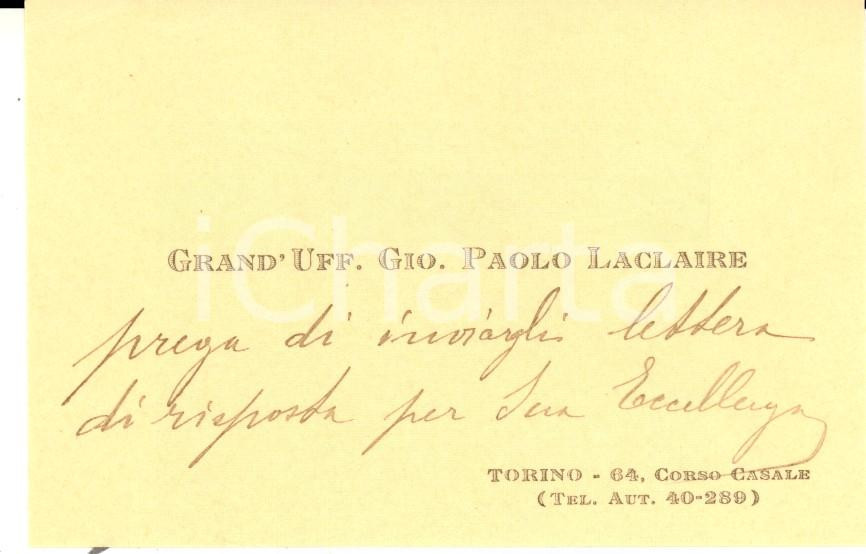 GRAND'UFF. GIO. PAOLO LACLAIRE
prega di inviargli lettera
di risposta per Sua Eccellenza
TORINO - 64, CORSO CASALE
(TEL. AUT. 40-289)
iCharta